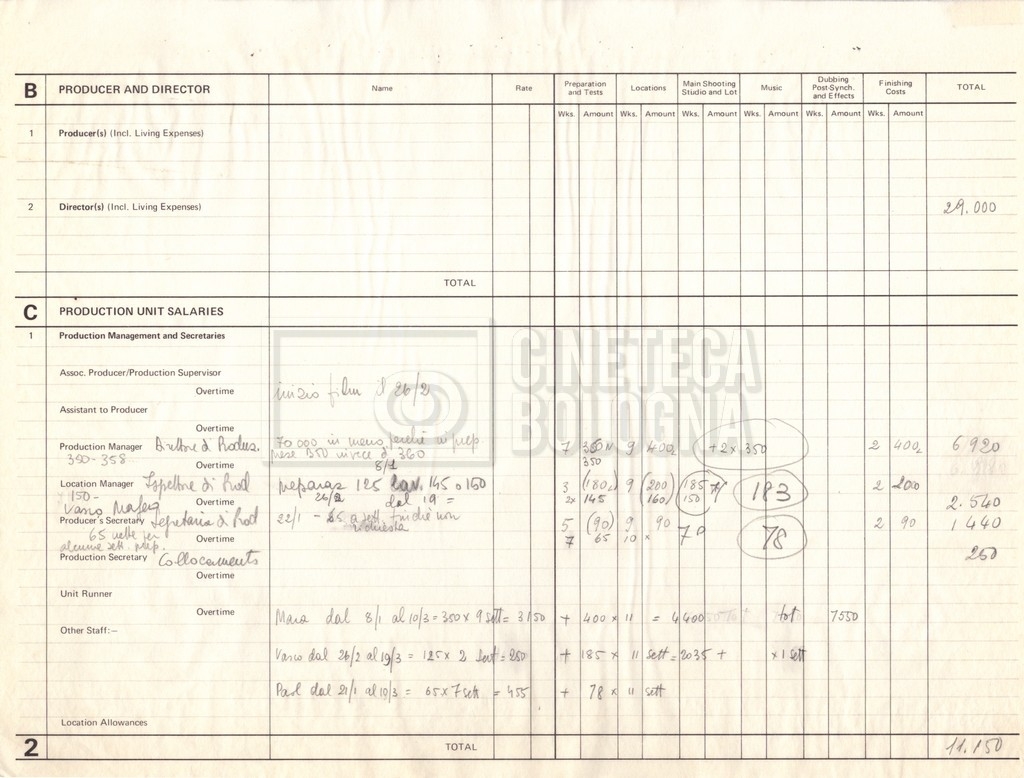 B PRODUCER AND DIRECTOR Name Rate Preparation and Tests Locations Main Shooting Studio and Lot Music Dubbing Post-Synch. and Effects Finishing Costs TOTAL
Wks. Amount Wks. Amount Wks. Amount Wks. Amount Wks. Amount Wks. Amount
1 Producer(s) (Incl. Living Expenses)
2 Director(s) (Incl. Living Expenses) 29.000
TOTAL
C PRODUCTION UNIT SALARIES
1 Production Management and Secretaries
CINETECA
BOLOGNA
Assoc. Producer/Production Supervisor
Overtime inizio film il 26/2
Assistant to Producer
Overtime
Production Manager 70.000 in meno perché in prep 7 9 400 +2x 350 2 400 6.920
350-358 prese 350 invece di 360 350
Overtime 8/1
Location Manager Ispettore di Prod 125 145 150 3 (180) 9 (200) (185 183 2 200
150- 26/2 dal 19 = 2x 145 (160) 150
Vasco Overtime 2.540
Producer's Secretary Segretaria di Prod 22/1 - 65 finché non 5 (90) 9 90 7 78 2 90 1440
65 nette per richiesta 7 65 10 x
Overtime
alcune sett. prep.
Production Secretary Collocamento 250
Overtime
Unit Runner
Overtime dal 8/1 al 10/3 = 350 x 9 sett = 3150 + 400 x 11 = 4400 tot 7550
Other Staff:—
Vasco dal 26/2 al 19/3 = 125 x 2 sett = 250 + 185 x 11 sett = 2035 + x 1 sett
dal 21/1 al 10/3 = 65 x 7 sett = 455 + 78 x 11 sett
Location Allowances
2 TOTAL 11.150